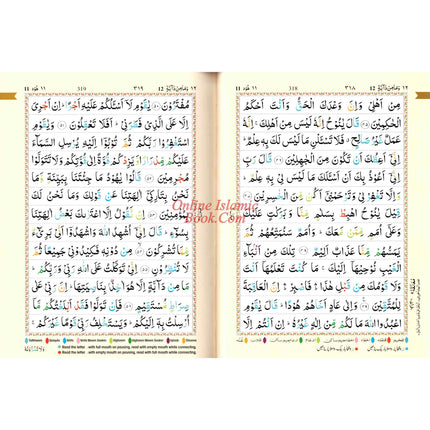 ١٢ وَمَا مِنْ دَآبَّةٍ 12 ٣١٨ 318 ١١ هُوْد 11
مِنْ اَهْلِيْ وَاِنَّ وَعْدَكَ الْحَقُّ وَاَنْتَ اَحْكَمُ
الْحٰكِمِيْنَ ۝ قَالَ يٰنُوْحُ اِنَّهٗ لَيْسَ مِنْ اَهْلِكَ اِنَّهٗ
عَمَلٌ غَيْرُ صَالِحٍ فَلَا تَسْـَٔلْنِ مَا لَيْسَ لَكَ بِهٖ عِلْمٌ
اِنِّيْٓ اَعِظُكَ اَنْ تَكُوْنَ مِنَ الْجٰهِلِيْنَ ۝ قَالَ رَبِّ
اِنِّيْٓ اَعُوْذُ بِكَ اَنْ اَسْـَٔلَكَ مَا لَيْسَ لِيْ بِهٖ عِلْمٌ
وَاِلَّا تَغْفِرْ لِيْ وَتَرْحَمْنِيْٓ اَكُنْ مِّنَ الْخٰسِرِيْنَ ۝
قِيْلَ يٰنُوْحُ اهْبِطْ بِسَلٰمٍ مِّنَّا وَبَرَكٰتٍ عَلَيْكَ وَعَلٰٓى
اُمَمٍ مِّمَّنْ مَّعَكَ وَاُمَمٌ سَنُمَتِّعُهُمْ ثُمَّ
يَمَسُّهُمْ مِّنَّا عَذَابٌ اَلِيْمٌ ۝ تِلْكَ مِنْ اَنْۢبَآءِ
الْغَيْبِ نُوْحِيْهَآ اِلَيْكَ مَا كُنْتَ تَعْلَمُهَآ اَنْتَ
وَلَا قَوْمُكَ مِنْ قَبْلِ هٰذَا فَاصْبِرْ اِنَّ الْعَاقِبَةَ
لِلْمُتَّقِيْنَ ۝ وَاِلٰى عَادٍ اَخَاهُمْ هُوْدًا قَالَ يٰقَوْمِ
اعْبُدُوا اللّٰهَ مَا لَكُمْ مِّنْ اِلٰهٍ غَيْرُهٗ اِنْ اَنْتُمْ اِلَّا
١٢ وَمَا مِنْ دَآبَّةٍ 12 ٣١٩ 319 ١١ هُوْد 11
مُفْتَرُوْنَ ۝ يٰقَوْمِ لَآ اَسْـَٔلُكُمْ عَلَيْهِ اَجْرًا اِنْ اَجْرِيَ
اِلَّا عَلَى الَّذِيْ فَطَرَنِيْ اَفَلَا تَعْقِلُوْنَ ۝ وَيٰقَوْمِ
اسْتَغْفِرُوْا رَبَّكُمْ ثُمَّ تُوْبُوْٓا اِلَيْهِ يُرْسِلِ السَّمَآءَ
عَلَيْكُمْ مِّدْرَارًا وَّيَزِدْكُمْ قُوَّةً اِلٰى قُوَّتِكُمْ وَلَا تَتَوَلَّوْا
مُجْرِمِيْنَ ۝ قَالُوْا يٰهُوْدُ مَا جِئْتَنَا بِبَيِّنَةٍ وَّمَا
نَحْنُ بِتَارِكِيْٓ اٰلِهَتِنَا عَنْ قَوْلِكَ وَمَا نَحْنُ لَكَ
بِمُؤْمِنِيْنَ ۝ اِنْ نَّقُوْلُ اِلَّا اعْتَرٰىكَ بَعْضُ اٰلِهَتِنَا
بِسُوْٓءٍ قَالَ اِنِّيْٓ اُشْهِدُ اللّٰهَ وَاشْهَدُوْٓا اَنِّيْ بَرِيْٓءٌ
مِّمَّا تُشْرِكُوْنَ ۝ مِنْ دُوْنِهٖ فَكِيْدُوْنِيْ جَمِيْعًا ثُمَّ
لَا تُنْظِرُوْنِ ۝ اِنِّيْ تَوَكَّلْتُ عَلَى اللّٰهِ رَبِّيْ وَرَبِّكُمْ مَا
مِنْ دَآبَّةٍ اِلَّا هُوَ اٰخِذٌۢ بِنَاصِيَتِهَا اِنَّ رَبِّيْ عَلٰى
صِرَاطٍ مُّسْتَقِيْمٍ ۝ فَاِنْ تَوَلَّوْا فَقَدْ اَبْلَغْتُكُمْ مَّآ
اُرْسِلْتُ بِهٖٓ اِلَيْكُمْ وَيَسْتَخْلِفُ رَبِّيْ قَوْمًا غَيْرَكُمْ
Online Islamic
Book.Com